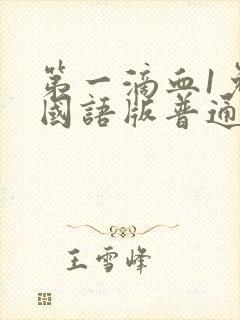 第一滴血1免
國語版普通
王雪峰